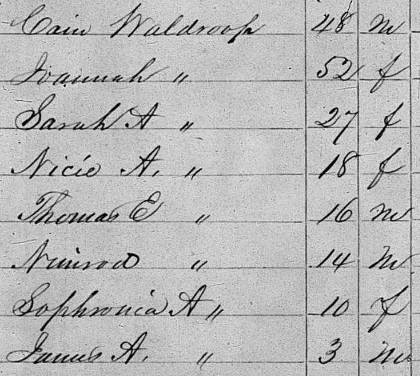 Cain Waldroop 48 m
Joannah " 52 f
Sarah A " 27 f
Nicie A. " 18 f
Thomas E " 16 m
Nimrod " 14 m
Sophronia A " 10 f
James A. " 3 m